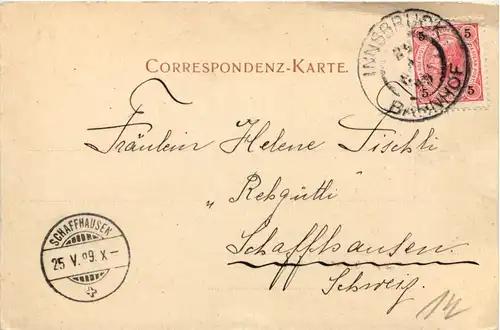 CORRESPONDENZ-KARTE.
INNSBRUCK
BAHNHOF
5 5
5 5
Fräulein Helene Tischli
„Rehgütli"
Schaffhausen.
Schweiz.
SCHAFFHAUSEN
25 V. 99. X–
14